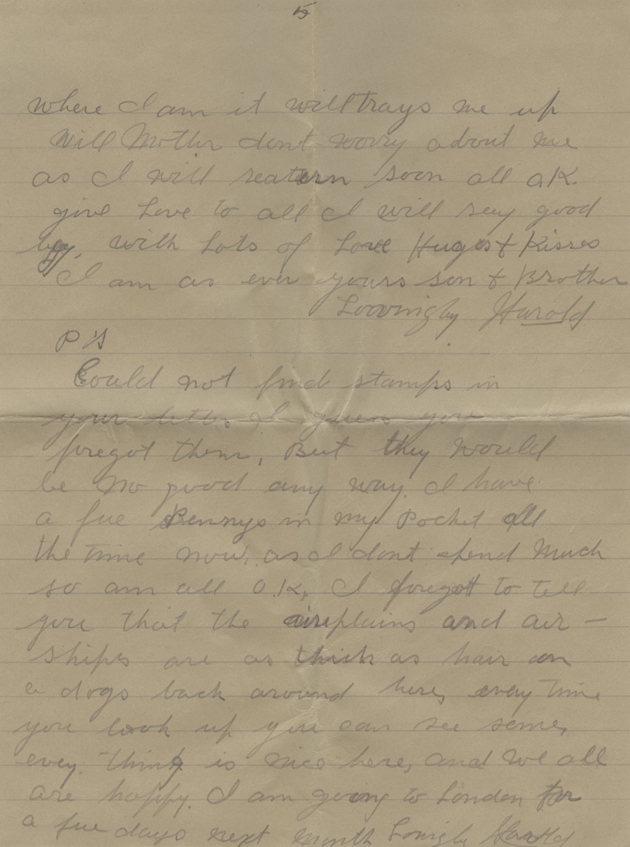 5
where I am it will trays me up
Will Mother dont worry about me
as I will reatern soon all OK.
give Love to all I will sey good
by, with Lots of Love Huges & Kisses
I am as ever yours son & Brother
Loovingly Harold
P S
Could not find stamps in
your letter I guess you
foregot them, But they would
be no good any way. I have
a fue Pennys in my Pocket all
the time now, as I dont spend much
so am all O.K, I foregot to tell
you that the airplains and air-
ships are as thick as hair on
a dogs back around here, every time
you look up you can see some,
evey thing is nice here, and we all
are happy. I am going to London for
a fue days next month Harold